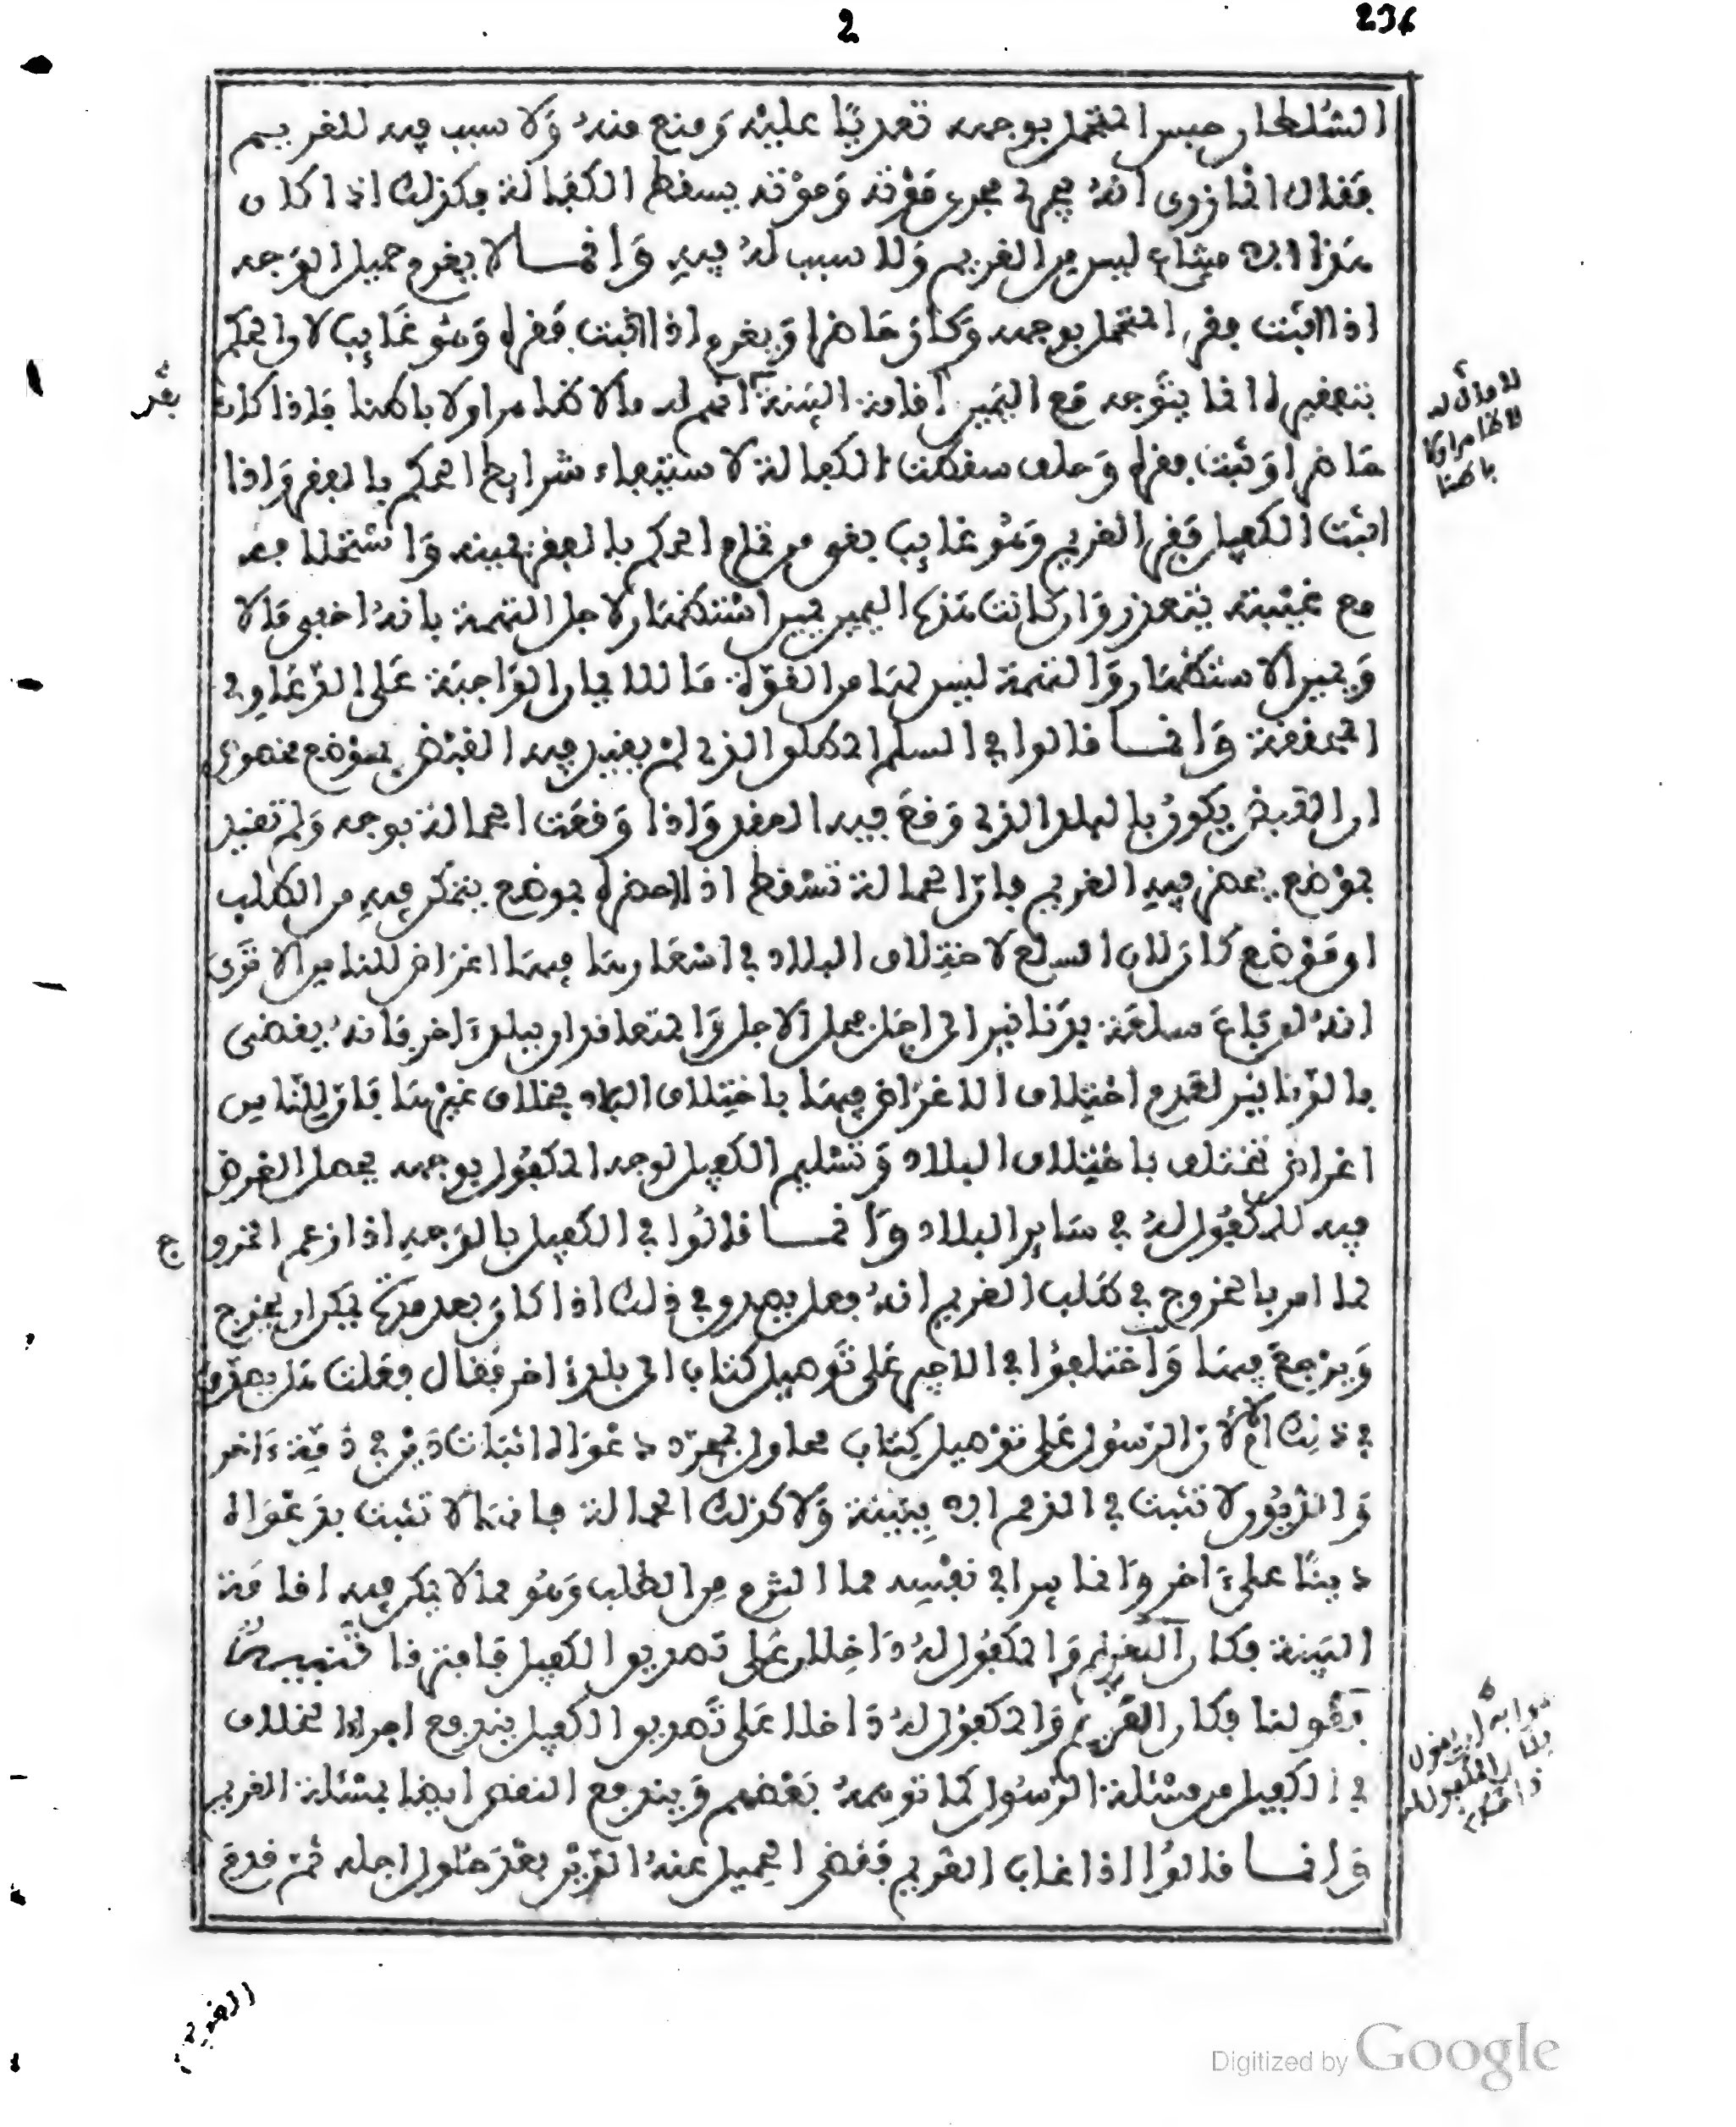 2
236
السلطان حبس المتحمل بوجهه تعديًا عليه ومنع منه ولا سبب فيه للغريم
فقال المازري انه يجري مجرى موته وموته يسقط الكفالة فكذلك اذا كان
هذا الامتناع ليس من الغريم ولا سبب له فيه وانمـا لا يغرم حميل الوجه
اذا اثبت فقر المتحمل بوجهه وكان حاضرا ويغرم اذا اثبت فقره وهو غايب لان الحكم
بتفقيره انما يتوجه مع اليمين اقامة البينة انه لا مال له لا ظاهرا ولا باطنا فاذا كان
بقر
لا مال له
لا ظاهرا ولا
باطنا
حاضرا وثبت فقره وحلف سقطت الكفالة لاستيفاء شرايط الحكم بالفقر واذا
اثبت الكفيل فقر الغريم وهو غايب بقي من تمام الحكم بالفقر يمينه واستحلافه
مع غيبته يتعذر وان كانت هذه اليمين يمين استظهار لاجل التهمة بانه اخفى مالا
ويمين الاستظهار والتهمة ليس لها من القوة ما للايمان الواجبة على الدعاوي
المحققة وانمـا قالوا في السلم المطلق الذي لم يقيد فيه القبض بموضع مخصوص
ان القبض يكون بالبلد الذي وقع فيه العقد واذا وقعت الحمالة بوجه ولم تقيد
بموضع يحضر فيه الغريم فان الحمالة تسقط اذا احضره بموضع يتمكن فيه من الطلب
او موضع كان لان السلع لاختلاف البلاد في اسعارها فيها اغراض للناس الا ترى
انه لو باع سلعة بدنانير الى اجل فحل الاجل والمتعاقدان ببلد ءاخر فانه يقضى
بالدنانير لعدم اختلاف الاغراض فيها باختلاف البلاد بخلاف غيرها فان للناس
اغراض تختلف باختلاف البلاد وتسليم الكفيل لوجه المكفول بوجهه يحصل الغرض
فيه للمكفول له في ساير البلاد وانمـا قالوا في الكفيل بالوجه اذا زعم الخرو
ج
لما امر بالخروج في طلب الغريم انه فعل يصدق في ذلك اذا كان بعد مدة يمكن ان يخرج
ويرجع فيها واختلفوا في الاجير على توصيل كتاب الى بلد ءاخر فقال فعلت هل يصدق
في ذلك ام لا لان الرسول على توصيل كتاب محاول بمجرد دعواه اثبات دين في ذمة ءاخر
والديون لا تثبت في الذمم الا ببينة ولا كذلك الحمالة فانها لا تثبت بدعواه
دينا على ءاخر وانما يبرئ نفسه مما التزم من الطلب وهو مما لا يمكن فيه اقامة
البينة فكان الغريم والمكفول له داخلا على تصديق الكفيل فافترقا تنبيـه
بقولنا فكان الغريم والمكفول له داخلا على تصديق الكفيل يندفع ايراد الخلاف
في الكفيل من مسئلة الرسول كما توهمه بعضهم ويندفع النقض ايضا بمسئلة الغريم
وانمـا قالوا اذا غاب الغريم فقضى الحميل عنه الدين بعد حلول اجله ثم قدم
الغريم
Digitized by Google